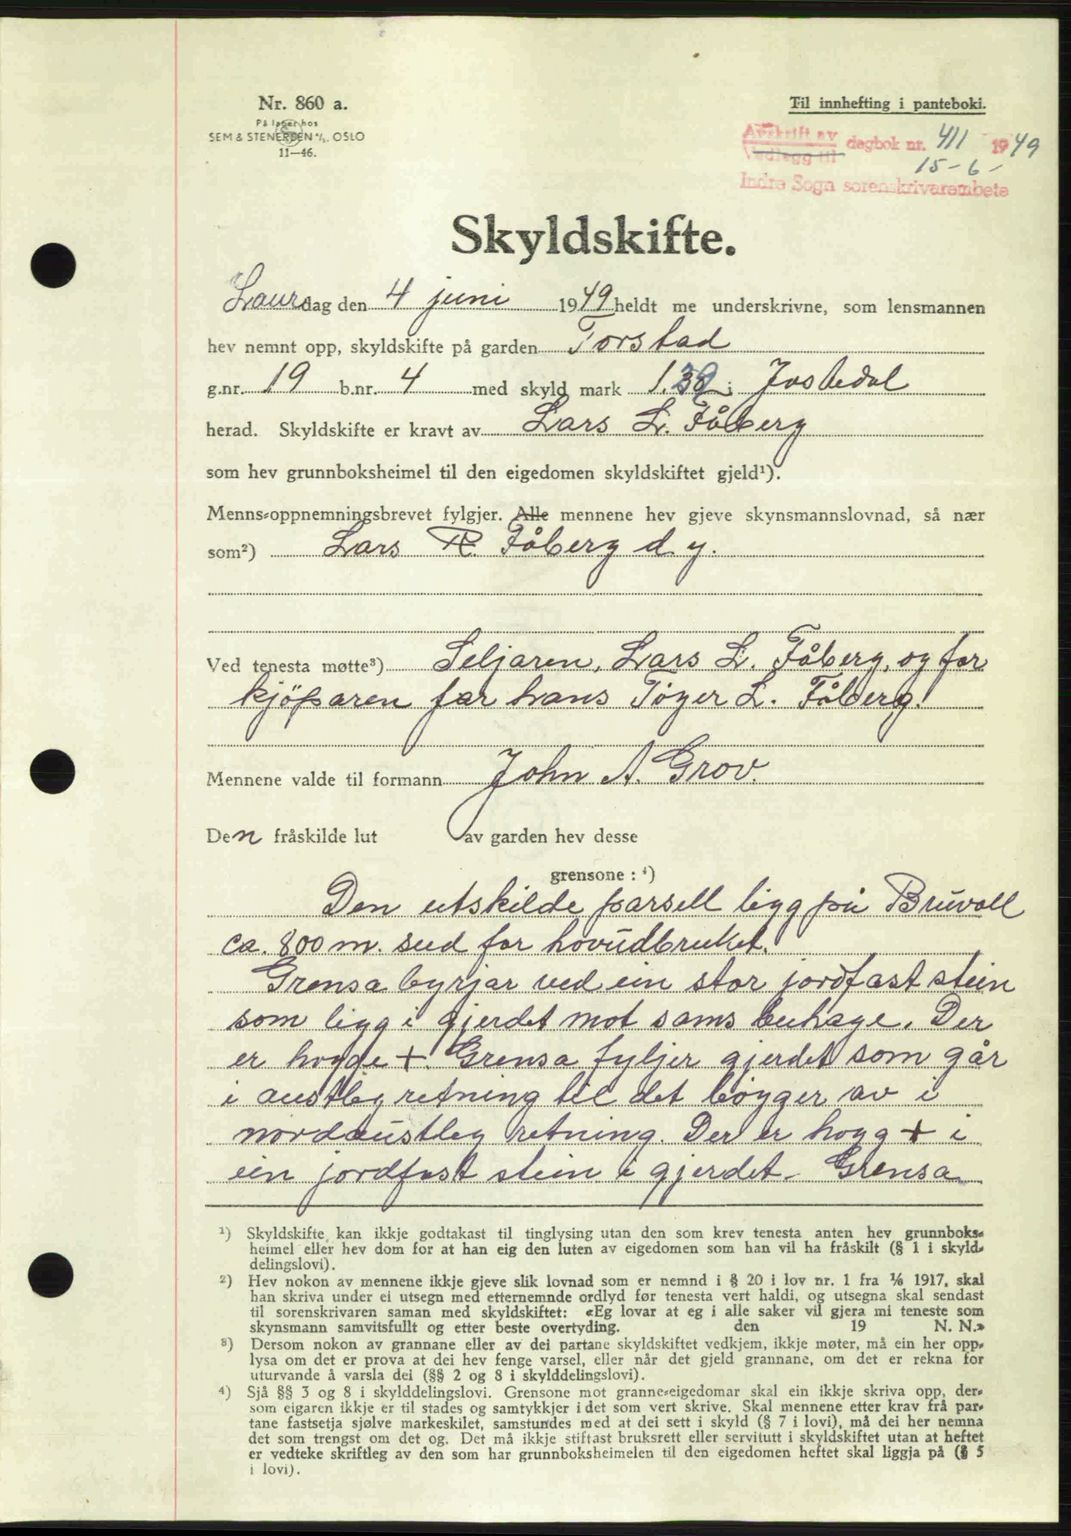 Nr. 860 a.
På lager hos
SEM & STENERSEN A/S, OSLO
11—46.
Til innhefting i panteboki.
Avskrift av
Vedlegg til
dagbok nr. 411 1949
15-6-
Indre Sogn sorenskrivarembete
Skyldskifte.
Laurdag den 4 juni 1949 heldt me underskrivne, som lensmannen
hev nemnt opp, skyldskifte på garden Forstad
g.nr. 19 b.nr. 4 med skyld mark 1.39 i Jostedal
herad. Skyldskifte er kravt av Lars L. Fåberg
som hev grunnboksheimel til den eigedomen skyldskiftet gjeld¹).
Menns-oppnemningsbrevet fylgjer. Alle mennene hev gjeve skynsmannslovnad, så nær
som²) Lars R. Fåberg d y.
Ved tenesta møtte³) Seljaren, Lars L. Fåberg, og for
kjöparen far hans Töger L. Fåberg.
Mennene valde til formann John A. Grov.
Den fråskilde lut av garden hev desse
grensone : ⁴)
Den utskilde parsell ligg på Bruvoll
ca. 800 m. sud for hovudbruket.
Grensa byrjar ved ein stor jordfast stein
som ligg i gjerdet mot sams beuhage. Der
er hogde +. Grensa fyljer gjerdet som går
i austleg retning til det böyger av i
nordaustleg retning. Der er hogg + i
ein jordfast stein i gjerdet. Grensa
¹) Skyldskifte kan ikkje godtakast til tinglysing utan den som krev tenesta anten hev grunnboks-
heimel eller hev dom for at han eig den luten av eigedomen som han vil ha fråskilt (§ 1 i skyld-
delingslovi).
²) Hev nokon av mennene ikkje gjeve slik lovnad som er nemnd i § 20 i lov nr. 1 fra 1/6 1917, skal
han skriva under ei utsegn med etternemnde ordlyd før tenesta vert haldi, og utsegna skal sendast
til sorenskrivaren saman med skyldskiftet: «Eg lovar at eg i alle saker vil gjera mi teneste som
skynsmann samvitsfullt og etter beste overtyding. den 19 N. N.»
³) Dersom nokon av grannane eller av dei partane skyldskiftet vedkjem, ikkje møter, må ein her opp-
lysa om det er prova at dei hev fenge varsel, eller når det gjeld grannane, om det er rekna for
uturvande å varsla dei (§§ 2 og 8 i skylddelingslovi).
⁴) Sjå §§ 3 og 8 i skylddelingslovi. Grensone mot granne-eigedomar skal ein ikkje skriva opp, der-
som eigaren ikkje er til stades og samtykkjer i det som vert skrive. Skal mennene etter krav frå par-
tane fastsetja sjølve markeskilet, samstundes med at dei sett i skyld (§ 7 i lovi), må dei her nemna
det som trengst om det og. Det må ikkje stiftast bruksrett eller servitutt i skyldskiftet utan at heftet
er vedteke skriftleg av den som har grunnboksheimelen til den eigedomen heftet skal liggja på (§ 5
i lovi).